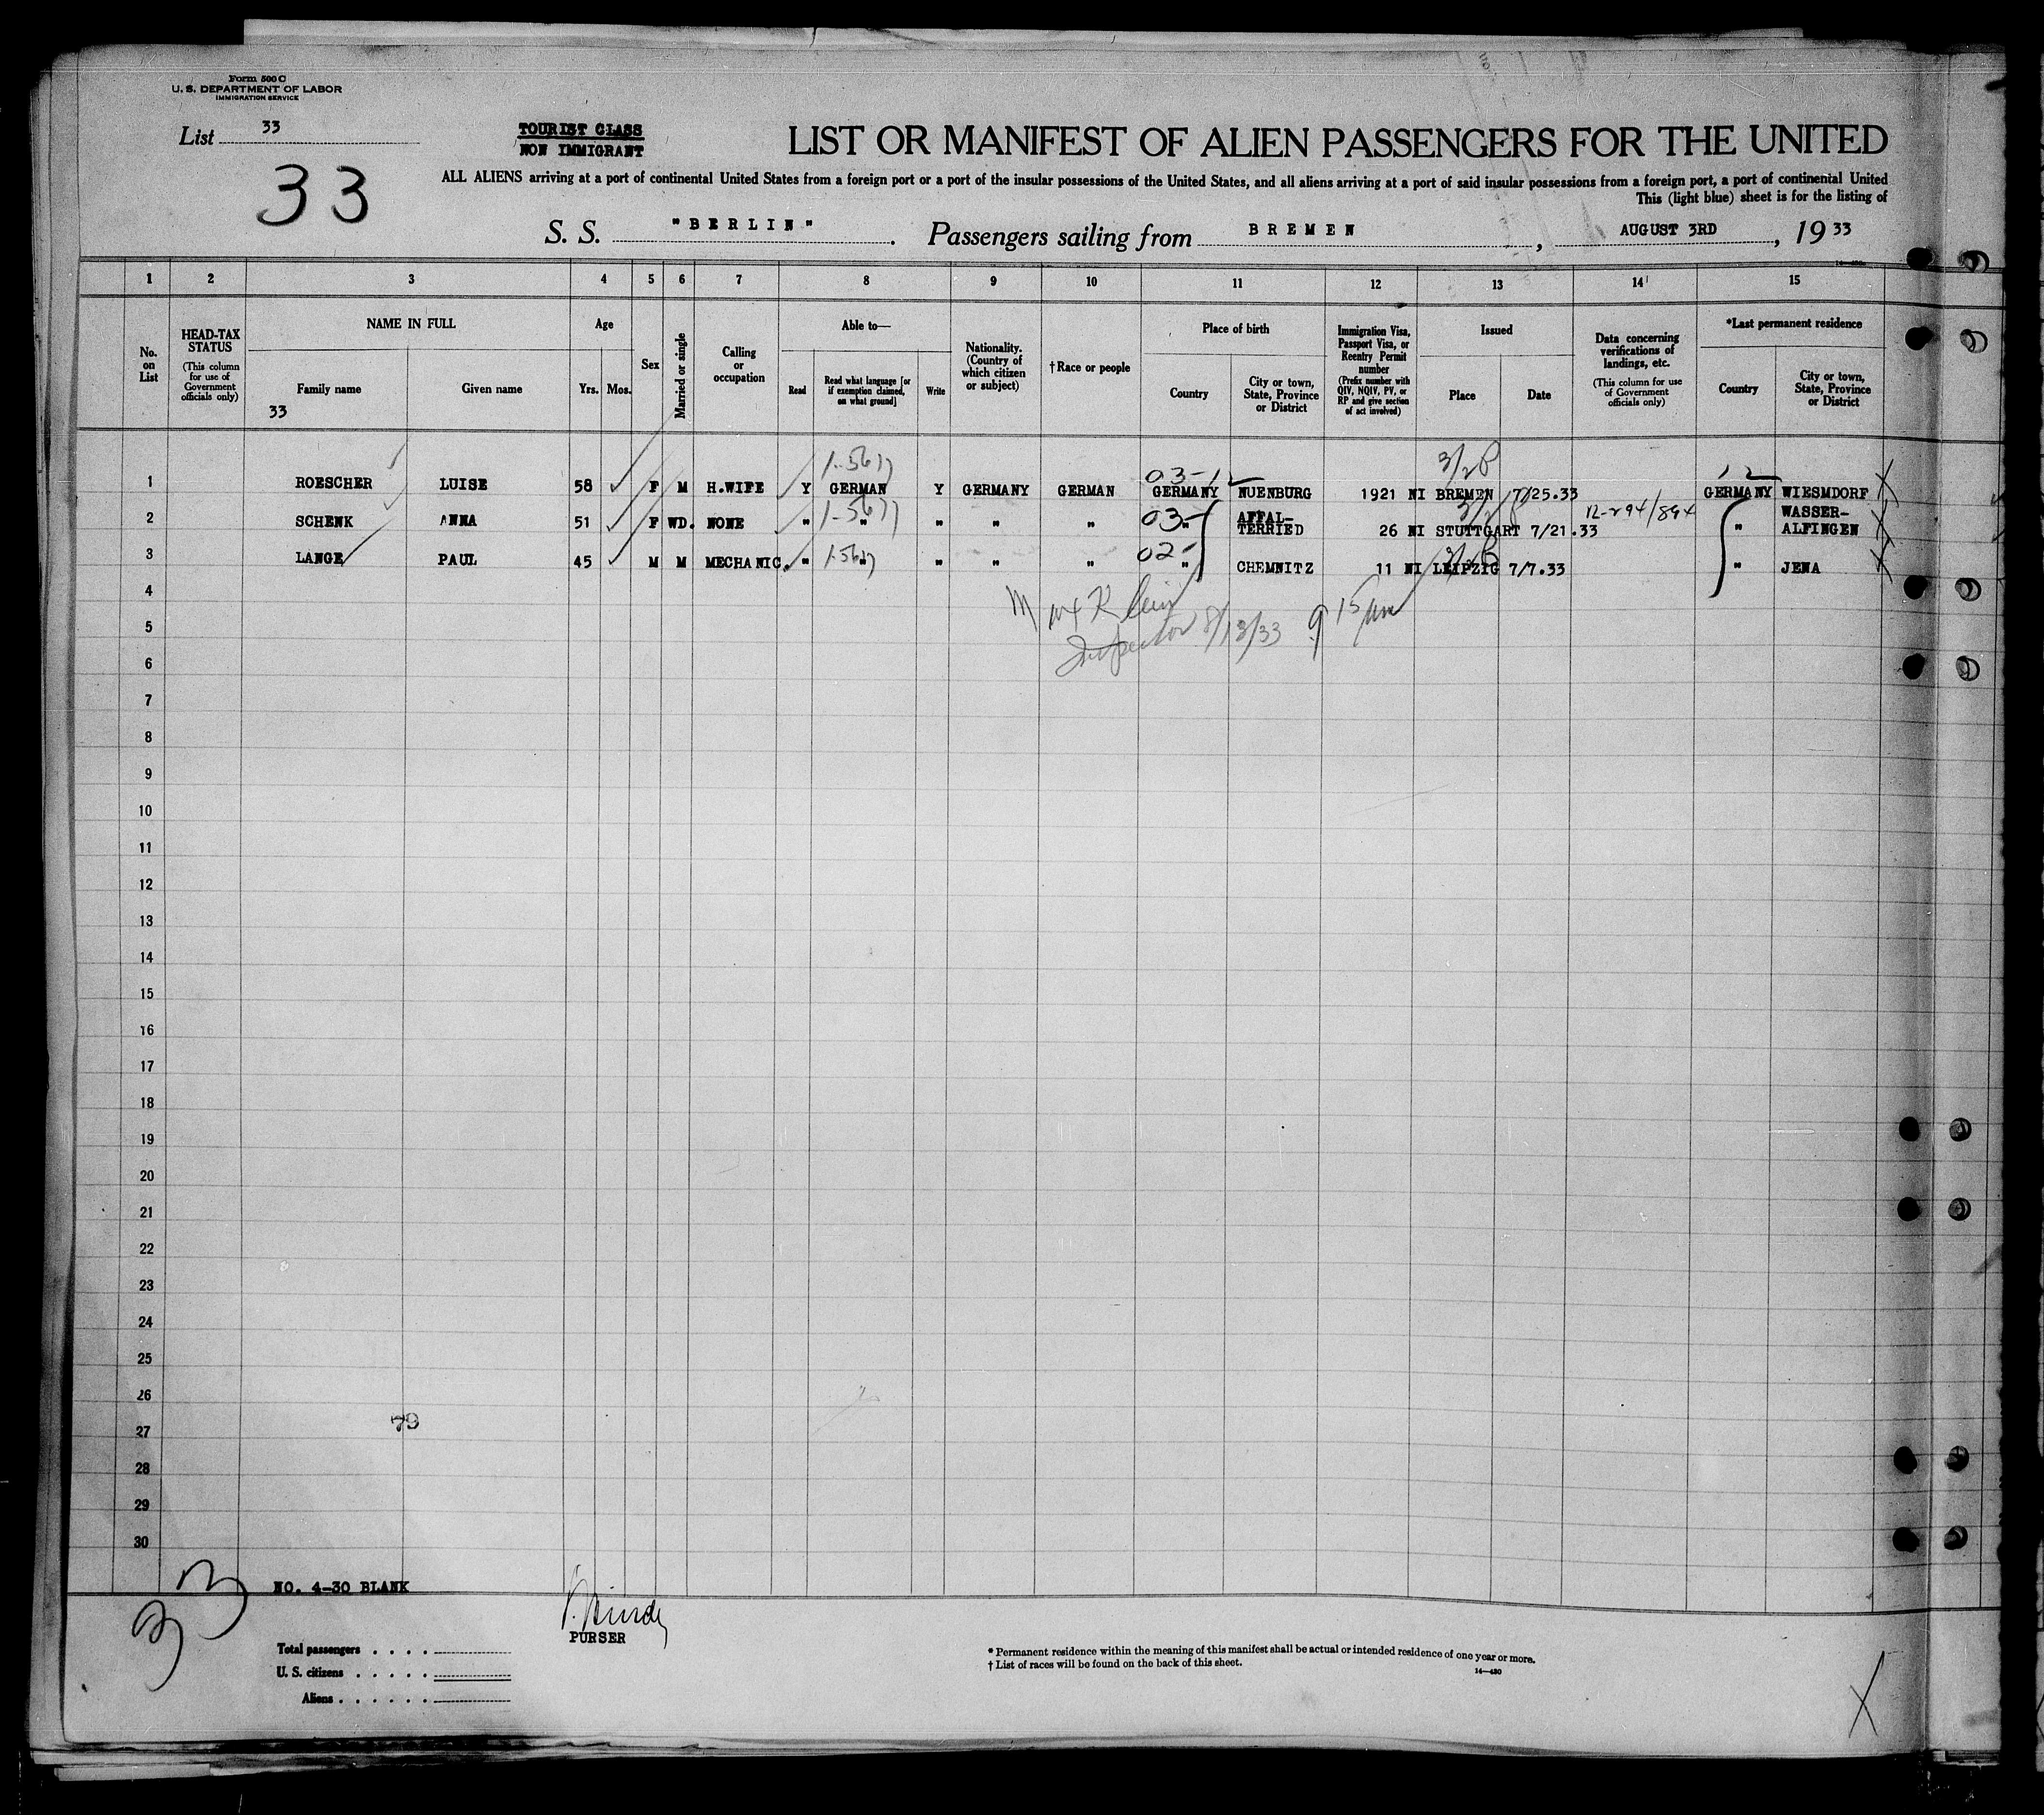 Form 500 C
U. S. DEPARTMENT OF LABOR
IMMIGRATION SERVICE
List 33
33
TOURIST CLASS
NON IMMIGRANT
LIST OR MANIFEST OF ALIEN PASSENGERS FOR THE UNITED
ALL ALIENS arriving at a port of continental United States from a foreign port or a port of the insular possessions of the United States, and all aliens arriving at a port of said insular possessions from a foreign port, a port of continental United
This (light blue) sheet is for the listing of
S. S. "BERLIN". Passengers sailing from BREMEN, AUGUST 3RD, 19 33
1 2 3 4 5 6 7 8 9 10 11 12 13 14 15
No. on List
HEAD-TAX STATUS
(This column for use of Government officials only)
NAME IN FULL
Family name
Given name
33
Age
Yrs. Mos.
Sex
Married or single
Calling or occupation
Able to—
Read
Read what language [or if exemption claimed, on what ground]
Write
Nationality. (Country of which citizen or subject)
†Race or people
Place of birth
Country
City or town, State, Province or District
Immigration Visa, Passport Visa, or Reentry Permit number
(Prefix number with QIV, NQIV, PV, or RP and give section of act involved)
Issued
Place
Date
Data concerning verifications of landings, etc.
(This column for use of Government officials only)
*Last permanent residence
Country
City or town, State, Province or District
3/28
03-12
12
1 ROESCHER LUISE 58 F M H.WIFE Y GERMAN Y GERMANY GERMAN GERMANY NUENBURG 1921 NI BREMEN 7/25.33 GERMANY WIESMDORF
2 SCHENK ANNA 51 F WD. NONE " " " " " 03- " AFFAL-TERRIED 26 NI STUTTGART 7/21.33 12-294/894 " WASSER-ALFINGEN
3 LANGE PAUL 45 M M MECHANIC. " " " " " 02- " CHEMNITZ 11 NI LEIPZIG 7/7.33 " JENA
4
Inspector 8/13/33 9 15 pm
5
6
7
8
9
10
11
12
13
14
15
16
17
18
19
20
21
22
23
24
25
26
79
27
28
29
30
33
NO. 4-30 BLANK
PURSER
Total passengers . . . .
U. S. citizens . . . . .
Aliens . . . . . .
* Permanent residence within the meaning of this manifest shall be actual or intended residence of one year or more.
† List of races will be found on the back of this sheet.
14—430
X